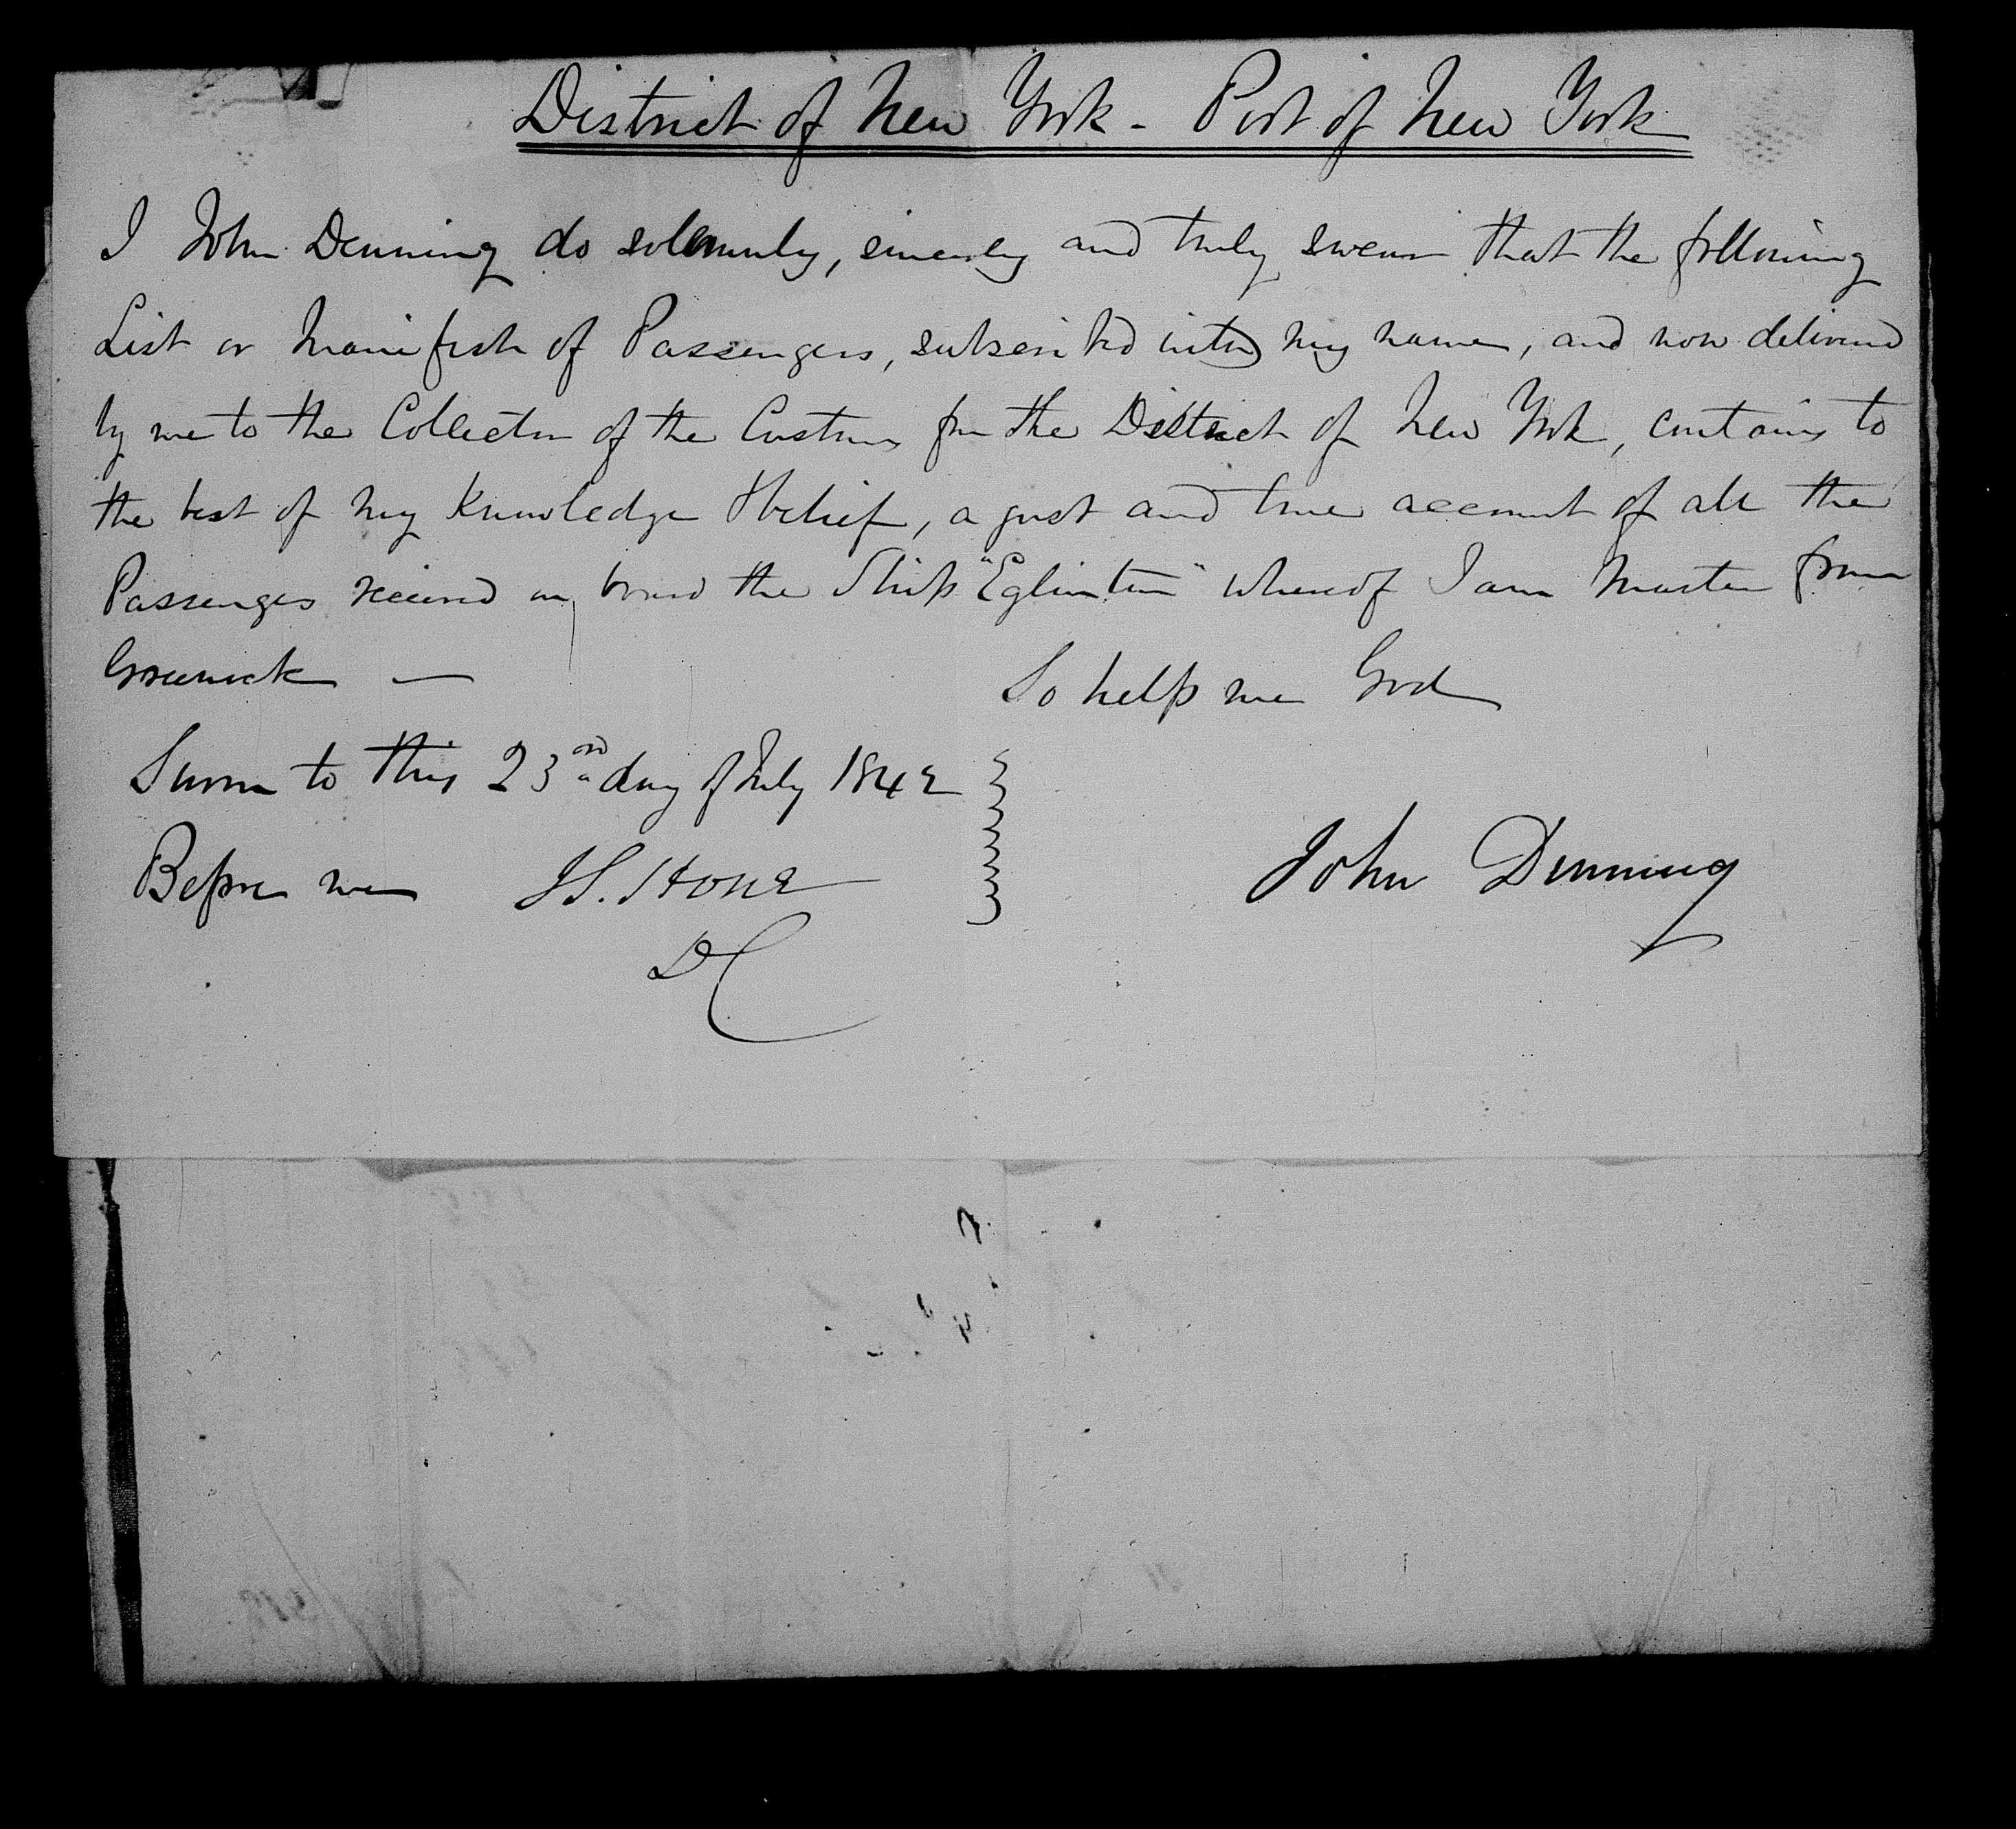 District of New York - Port of New York
I John Denning do solemnly, sincerely and truly swear that the following
List or Manifest of Passengers, subscribed with my name, and now delivered
by me to the Collector of the Customs for the District of New York, contains to
the best of my Knowledge & belief, a just and true account of all the
Passengers received on board the Ship "Eglinton" whereof I am Master from
Greenock —
So help me God
Sworn to this 23rd day of July 1842
Before me
John Denning
DC